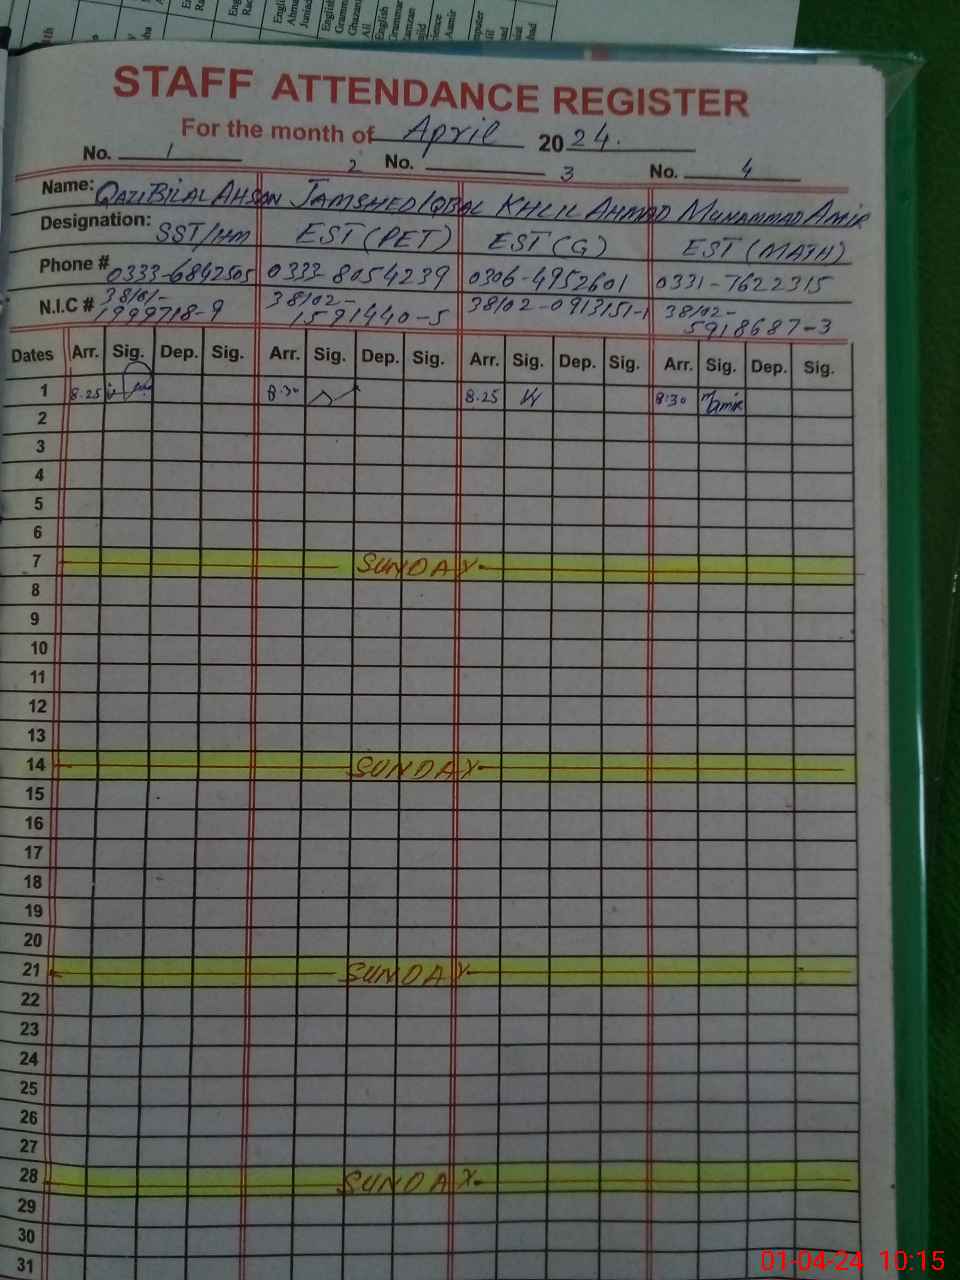 STAFF ATTENDANCE REGISTER
For the month of April 2024.
No. 1 2 No. 3 No. 4
Name: QAZI BILAL AHSAN JAMSHED IQBAL KHLIL AHMAD MUHAMMAD AMIR
Designation: SST/HM EST (PET) EST (G) EST (MATH)
Phone # 0333-6842505 0333-8054239 0306-4952601 0331-7622315
N.I.C # 38101-1999718-9 38102-1591440-5 38102-0913151-1 38102-5918687-3
Dates Arr. Sig. Dep. Sig. Arr. Sig. Dep. Sig. Arr. Sig. Dep. Sig. Arr. Sig. Dep. Sig.
1 8.25 8:30 8.25 8:30 Mamir
2
3
4
5
6
7 SUNDAY
8
9
10
11
12
13
14 SUNDAY
15
16
17
18
19
20
21 SUNDAY
22
23
24
25
26
27
28 SUNDAY
29
30
31
01-04-24 10:15